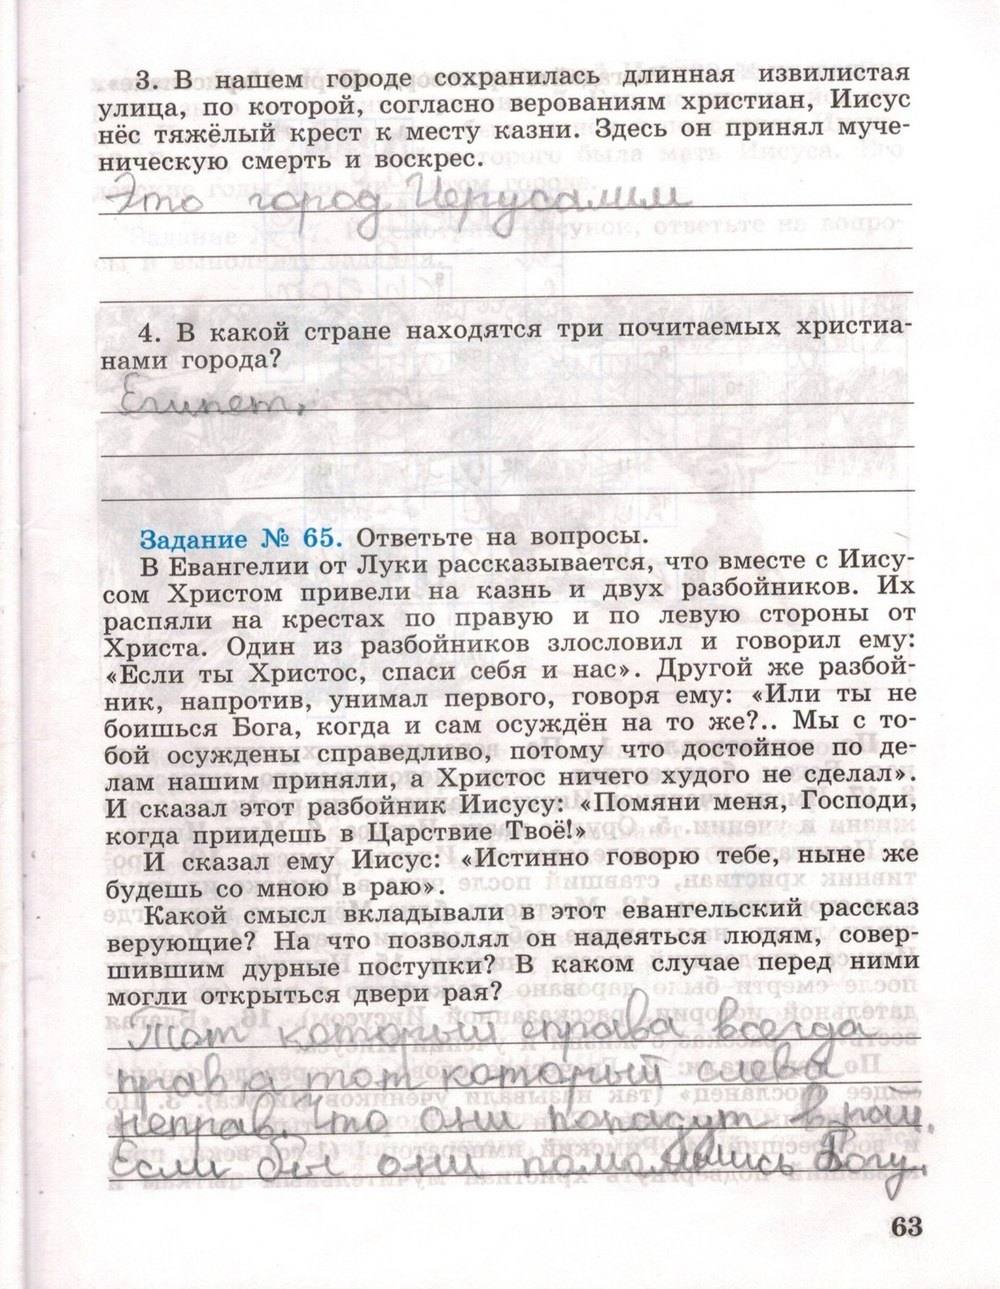 3. В нашем городе сохранилась длинная извилистая
улица, по которой, согласно верованиям христиан, Иисус
нёс тяжёлый крест к месту казни. Здесь он принял муче-
ническую смерть и воскрес.
Это город Иерусалим
4. В какой стране находятся три почитаемых христиа-
нами города?
Египет.
Задание № 65. Ответьте на вопросы.
В Евангелии от Луки рассказывается, что вместе с Иису-
сом Христом привели на казнь и двух разбойников. Их
распяли на крестах по правую и по левую стороны от
Христа. Один из разбойников злословил и говорил ему:
«Если ты Христос, спаси себя и нас». Другой же разбой-
ник, напротив, унимал первого, говоря ему: «Или ты не
боишься Бога, когда и сам осуждён на то же?.. Мы с то-
бой осуждены справедливо, потому что достойное по де-
лам нашим приняли, а Христос ничего худого не сделал».
И сказал этот разбойник Иисусу: «Помяни меня, Господи,
когда приидешь в Царствие Твоё!»
И сказал ему Иисус: «Истинно говорю тебе, ныне же
будешь со мною в раю».
Какой смысл вкладывали в этот евангельский рассказ
верующие? На что позволял он надеяться людям, совер-
шившим дурные поступки? В каком случае перед ними
могли открыться двери рая?
Тот который справа всегда
прав а тот который слева
неправ. Что они попадут в рай.
Если бы они помолились Богу.
63